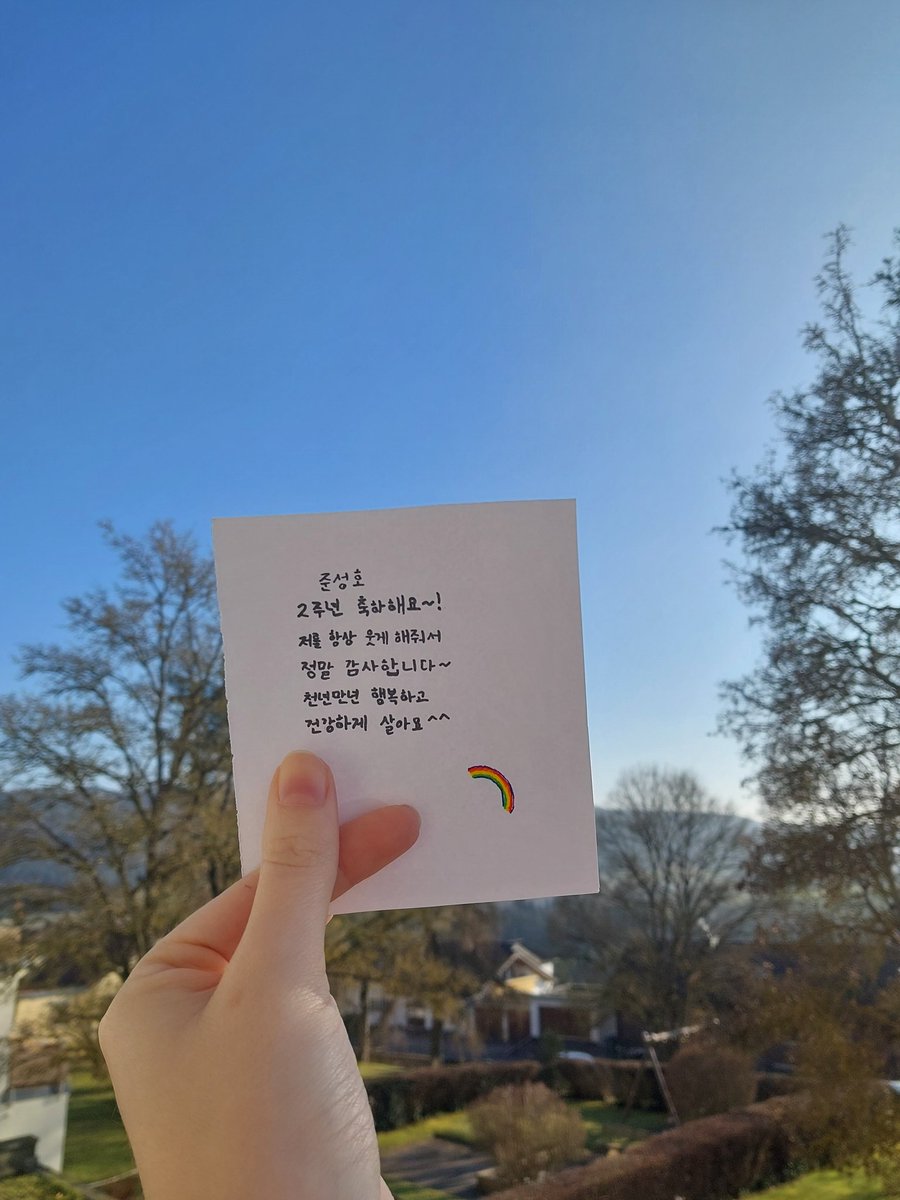 준성호
2주년 축하해요~!
저를 항상 웃게 해줘서
정말 감사합니다~
천년만년 행복하고
건강하게 살아요^^